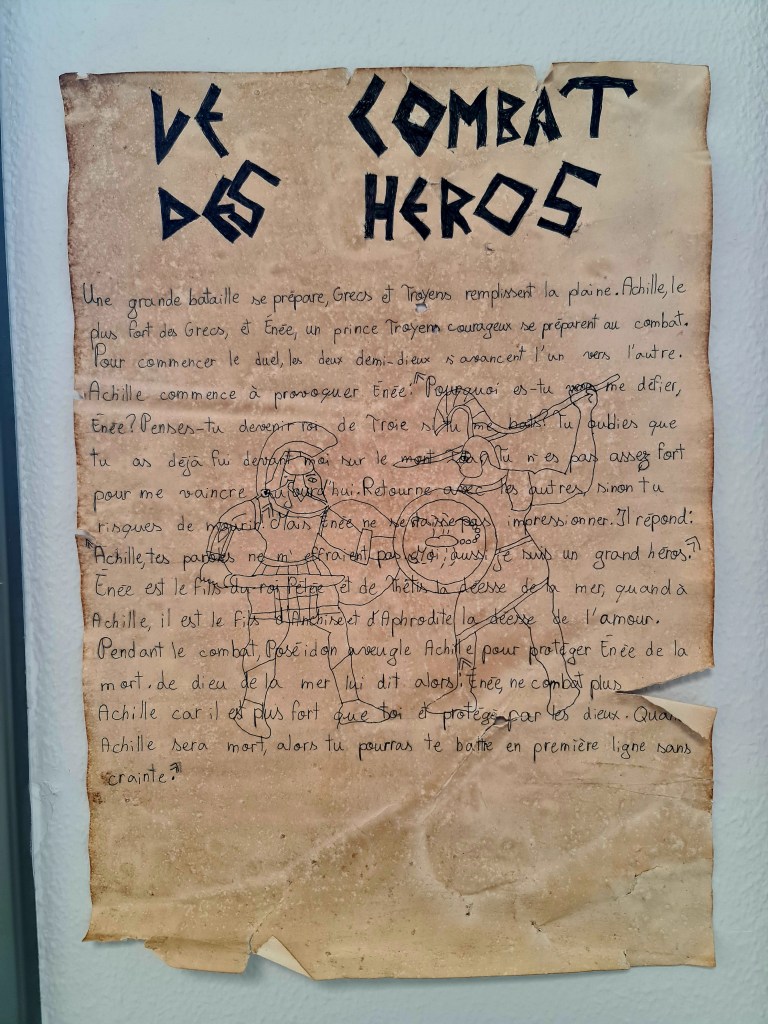 LE COMBAT
DES HEROS
Une grande bataille se prépare, Grecs et Troyens remplissent la plaine. Achille, le
plus fort des Grecs, et Énée, un prince Troyen courageux se préparent au combat.
Pour commencer le duel, les deux demi-dieux s'avancent l'un vers l'autre.
Achille commence à provoquer Énée: "Pourquoi es-tu me défier,
Énée? Penses-tu devenir roi de Troie si tu me bats? Tu oublies que
tu as déjà fui devant moi sur le mont Ida. Tu n'es pas assez fort
pour me vaincre aujourd'hui. Retourne avec les autres, sinon tu
risques de mourir." Mais Énée ne se laisse pas impressionner. Il répond:
"Achille, tes paroles ne m'effraient pas. Moi, aussi je suis un grand héros."
Énée est le fils du roi Pélée et de Thétis la déesse de la mer, quand à
Achille, il est le fils d'Anchise et d'Aphrodite la déesse de l'amour.
Pendant le combat, Poséidon aveugle Achille pour protéger Énée de la
mort. de dieu de la mer lui dit alors: "Énée, ne combat plus
Achille car il est plus fort que toi et protégé par les dieux. Qua
Achille sera mort, alors tu pourras te battre en première ligne sans
crainte."